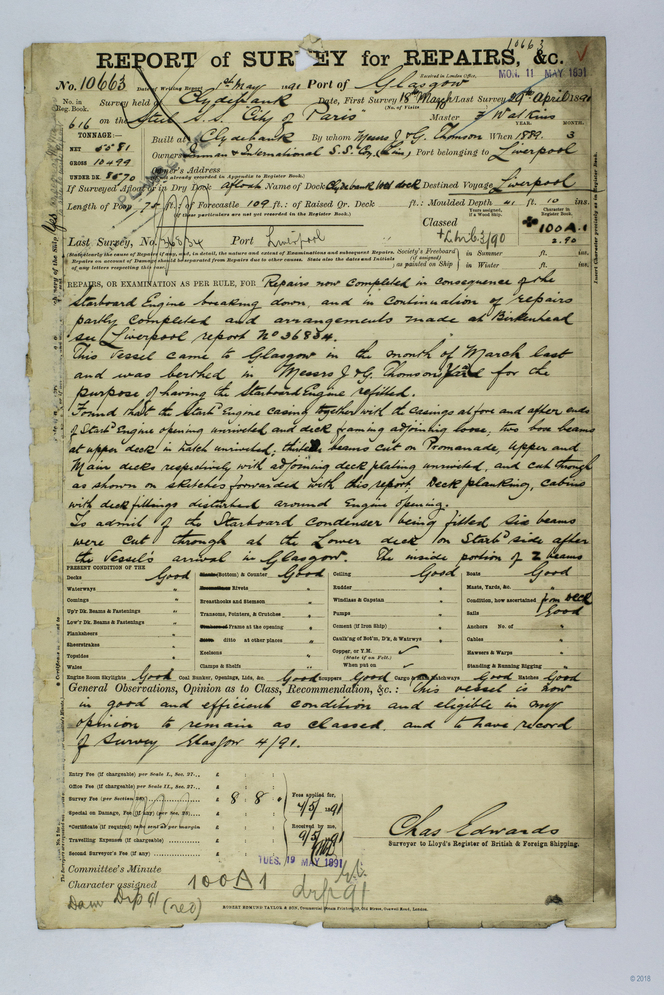 10663
REPORT of SURVEY for REPAIRS, &c.
Received in London Office,
MON. 11 MAY 1891
No. 10663 Date of Writing Report 1st May 1891 Port of Glasgow
No. in Reg. Book.
Survey held at Clydebank Date, First Survey 18th March Last Survey 29th April 1891
(No. of Visits )
616 on the Steel S.S. "City of Paris" Master Watkins
TONNAGE:— YEAR. MONTH.
NET 5581 Built at Clydebank By whom Messrs J. & G. Thomson When 1889. 3
GROSS 10499 Owners Inman & International S.S. Coy. (Lim) Port belonging to Liverpool
UNDER DK. 8670 Owner's Address
(if not already recorded in Appendix to Register Book.)
If Surveyed Afloat or in Dry Dock afloat Name of Dock Clydebank wet dock Destined Voyage Liverpool
Length of Poop 75 ft.: of Forecastle 109 ft.: of Raised Qr. Deck ft.: Moulded Depth 41 ft. 10 ins.
(If these particulars are not yet recorded in the Register Book.)
Years assigned, if a Wood Ship.
Character in Register Book.
Classed 100A.1
2.90
Last Survey, No. 36834 Port Liverpool
Society's Freeboard (if assigned) as painted on Ship
in Summer ft. ins.
in Winter ft. ins.
REPAIRS, OR EXAMINATION AS PER RULE, FOR Repairs now completed in consequence of the
Starboard Engine breaking down, and in continuation of repairs
partly completed and arrangements made at Birkenhead
see Liverpool report No 36834.
This Vessel came to Glasgow in the month of March last
and was berthed in Messrs J. & G. Thomson Yard for the
purpose of having the Starboard Engine refitted.
Found that the Starbd Engine casing together with the casings at fore and after ends
of Starbd Engine opening unriveted and deck framing adjoining loose, two box beams
at upper deck in hatch unriveted; beams cut on Promanade, Upper and
Main decks respectively with adjoining deck plating unriveted, and cut through
as shown on sketches forwarded with this report, Deck planking, cabins
with deck fittings disturbed around Engine opening.
To admit of the Starboard Condenser being fitted six beams
were cut through at the Lower deck on Starbd side after
the Vessel's arrival in Glasgow. The inside portion of 2 beams
PRESENT CONDITION OF THE
Decks Good
Waterways "
Comings "
Up'r Dk. Beams & Fastenings "
Low'r Dk. Beams & Fastenings "
Planksheers "
Sheerstrakes "
Topsides "
Wales "
(Bottom) & Counter Good
Rivets "
Breasthooks and Stemson "
Transoms, Pointers, & Crutches "
Frame at the opening "
ditto at other places "
Keelsons "
Clamps & Shelfs "
Ceiling Good
Rudder "
Windlass & Capstan "
Pumps "
Cement (if Iron Ship) "
Caulk'ng of Bot'm, D'k, & Watrwys "
Copper, or Y.M.
(State if on Felt.)
When put on
Boats Good
Masts, Yards, &c. "
Condition, how ascertained from Deck
Sails Good
Anchors No. of "
Cables "
Hawsers & Warps "
Standing & Running Rigging "
Engine Room Skylights Good Coal Bunker, Openings, Lids, &c. Good Scuppers Good Cargo & Hatchways Good Hatches Good
General Observations, Opinion as to Class, Recommendation, &c.: This vessel is now
in good and efficient condition and eligible in my
opinion to remain as classed and to have record
of survey Glasgow 4/91.
Entry Fee (if chargeable) per Scale I., Sec. 27... £
Office Fee (if chargeable) per Scale II., Sec. 27... £
Survey Fee (per Section 28) £ 8 : 8 :
Special on Damage, Fee (if any) (per Sec. 28)... £
*Certificate (if required) to be sent as per margin £
Travelling Expenses (if chargeable) £
Second Surveyor's Fee (if any) £
Fees applied for,
7/5/1891
Received by me,
9/5/1891
Chas Edwards
Surveyor to Lloyd's Register of British & Foreign Shipping.
TUES. 19 MAY 1891
Committee's Minute
Character assigned 100A1
Dam Drp 91 (red)
drp 91
ROBERT EDMUND TAYLOR & SON, London.
© 2018